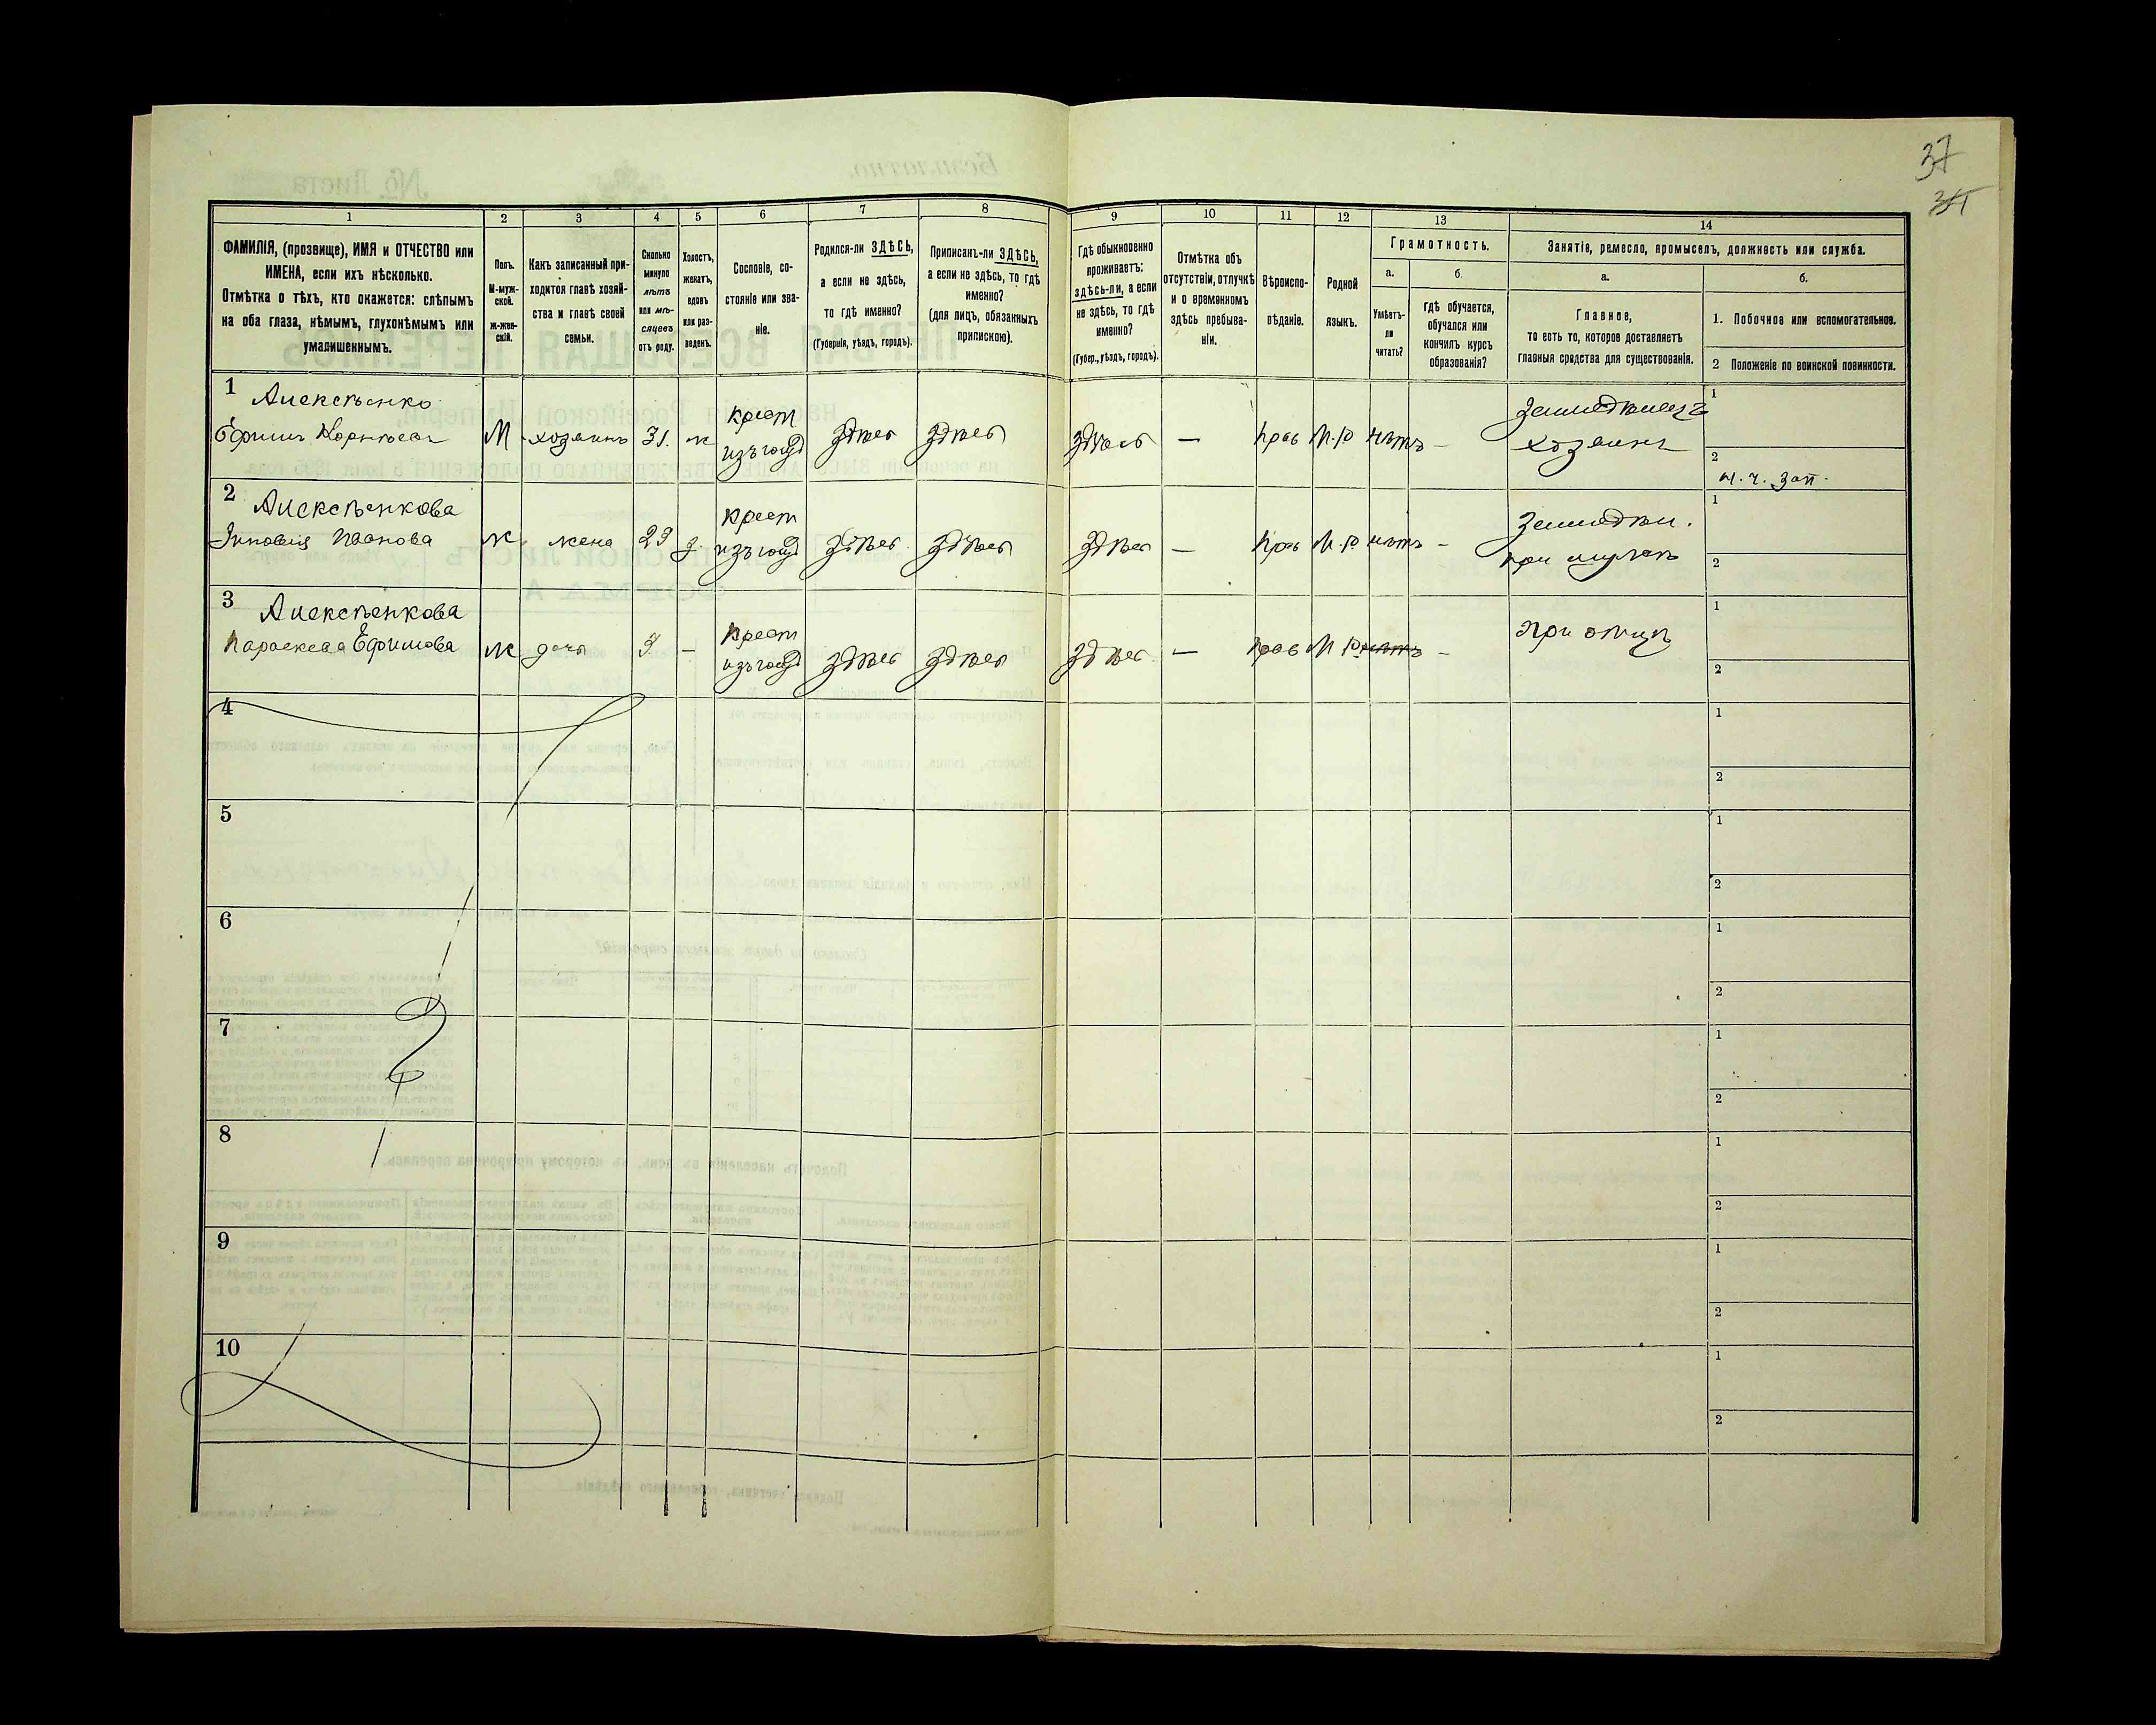 37
1
2
3
4
5
6
7
8
9
10
11
12
13
14
ФАМИЛІЯ, (прозвище), ИМЯ и ОТЧЕСТВО или
ИМЕНА, если ихъ нѣсколько.
Отмѣтка о тѣхъ, кто окажется: слѣпымъ
на оба глаза, нѣмымъ, глухонѣмымъ или
умалишеннымъ.
Полъ.
М-муж-
ской.
ж-жен-
скій.
Какъ записанный при-
ходится главѣ хозяй-
ства и главѣ своей
семьи.
Сколько
минуло
лѣтъ
или мѣ-
сяцевъ
отъ роду.
Холостъ,
женатъ,
вдовъ
или раз-
веденъ.
Сословіе, со-
стояніе или зва-
ніе.
Родился-ли ЗДѢСЬ,
а если не здѣсь,
то гдѣ именно?
(Губернія, уѣздъ, городъ).
Приписанъ-ли ЗДѢСЬ,
а если не здѣсь, то гдѣ
именно?
(для лицъ, обязанныхъ
припискою).
Гдѣ обыкновенно
проживаетъ:
здѣсь-ли, а если
не здѣсь, то гдѣ
именно?
(Губер., уѣздъ, городъ).
Отмѣтка объ
отсутствіи, отлучкѣ
и о временномъ
здѣсь пребыва-
ніи.
Вѣроиспо-
вѣданіе.
Родной
языкъ.
Грамотность.
а.
Умѣетъ-
ли
читать?
б.
гдѣ обучается,
обучался или
кончилъ курсъ
образованія?
Занятіе, ремесло, промыселъ, должность или служба.
а.
Главное,
то есть то, которое доставляетъ
главныя средства для существованія.
б.
1. Побочное или вспомогательное.
2 Положеніе по воинской повинности.
1 Алексѣенко
Ефимъ Корнѣевъ
М
хозяинъ
31.
ж
крест
изъ госуд
здѣсь
здѣсь
здѣсь
—
Прав
М.р
нѣтъ
—
хозяинъ
1
2
н. ч. зап.
2 Алексѣенкова
Зиновія Иванова
ж
жена
з.
крест
изъ госуд
здѣсь
здѣсь
здѣсь
—
Прав
М.р
нѣтъ
—
Земледѣл.
при мужѣ
1
2
3 Алексѣенкова
Параскева Ефимова
ж
дочь
—
крест
изъ госуд
здѣсь
здѣсь
здѣсь
—
Прав
М р
нѣтъ
—
при отцѣ
1
2
4
1
2
5
1
2
6
1
2
7
1
2
8
1
2
9
1
2
10
1
2